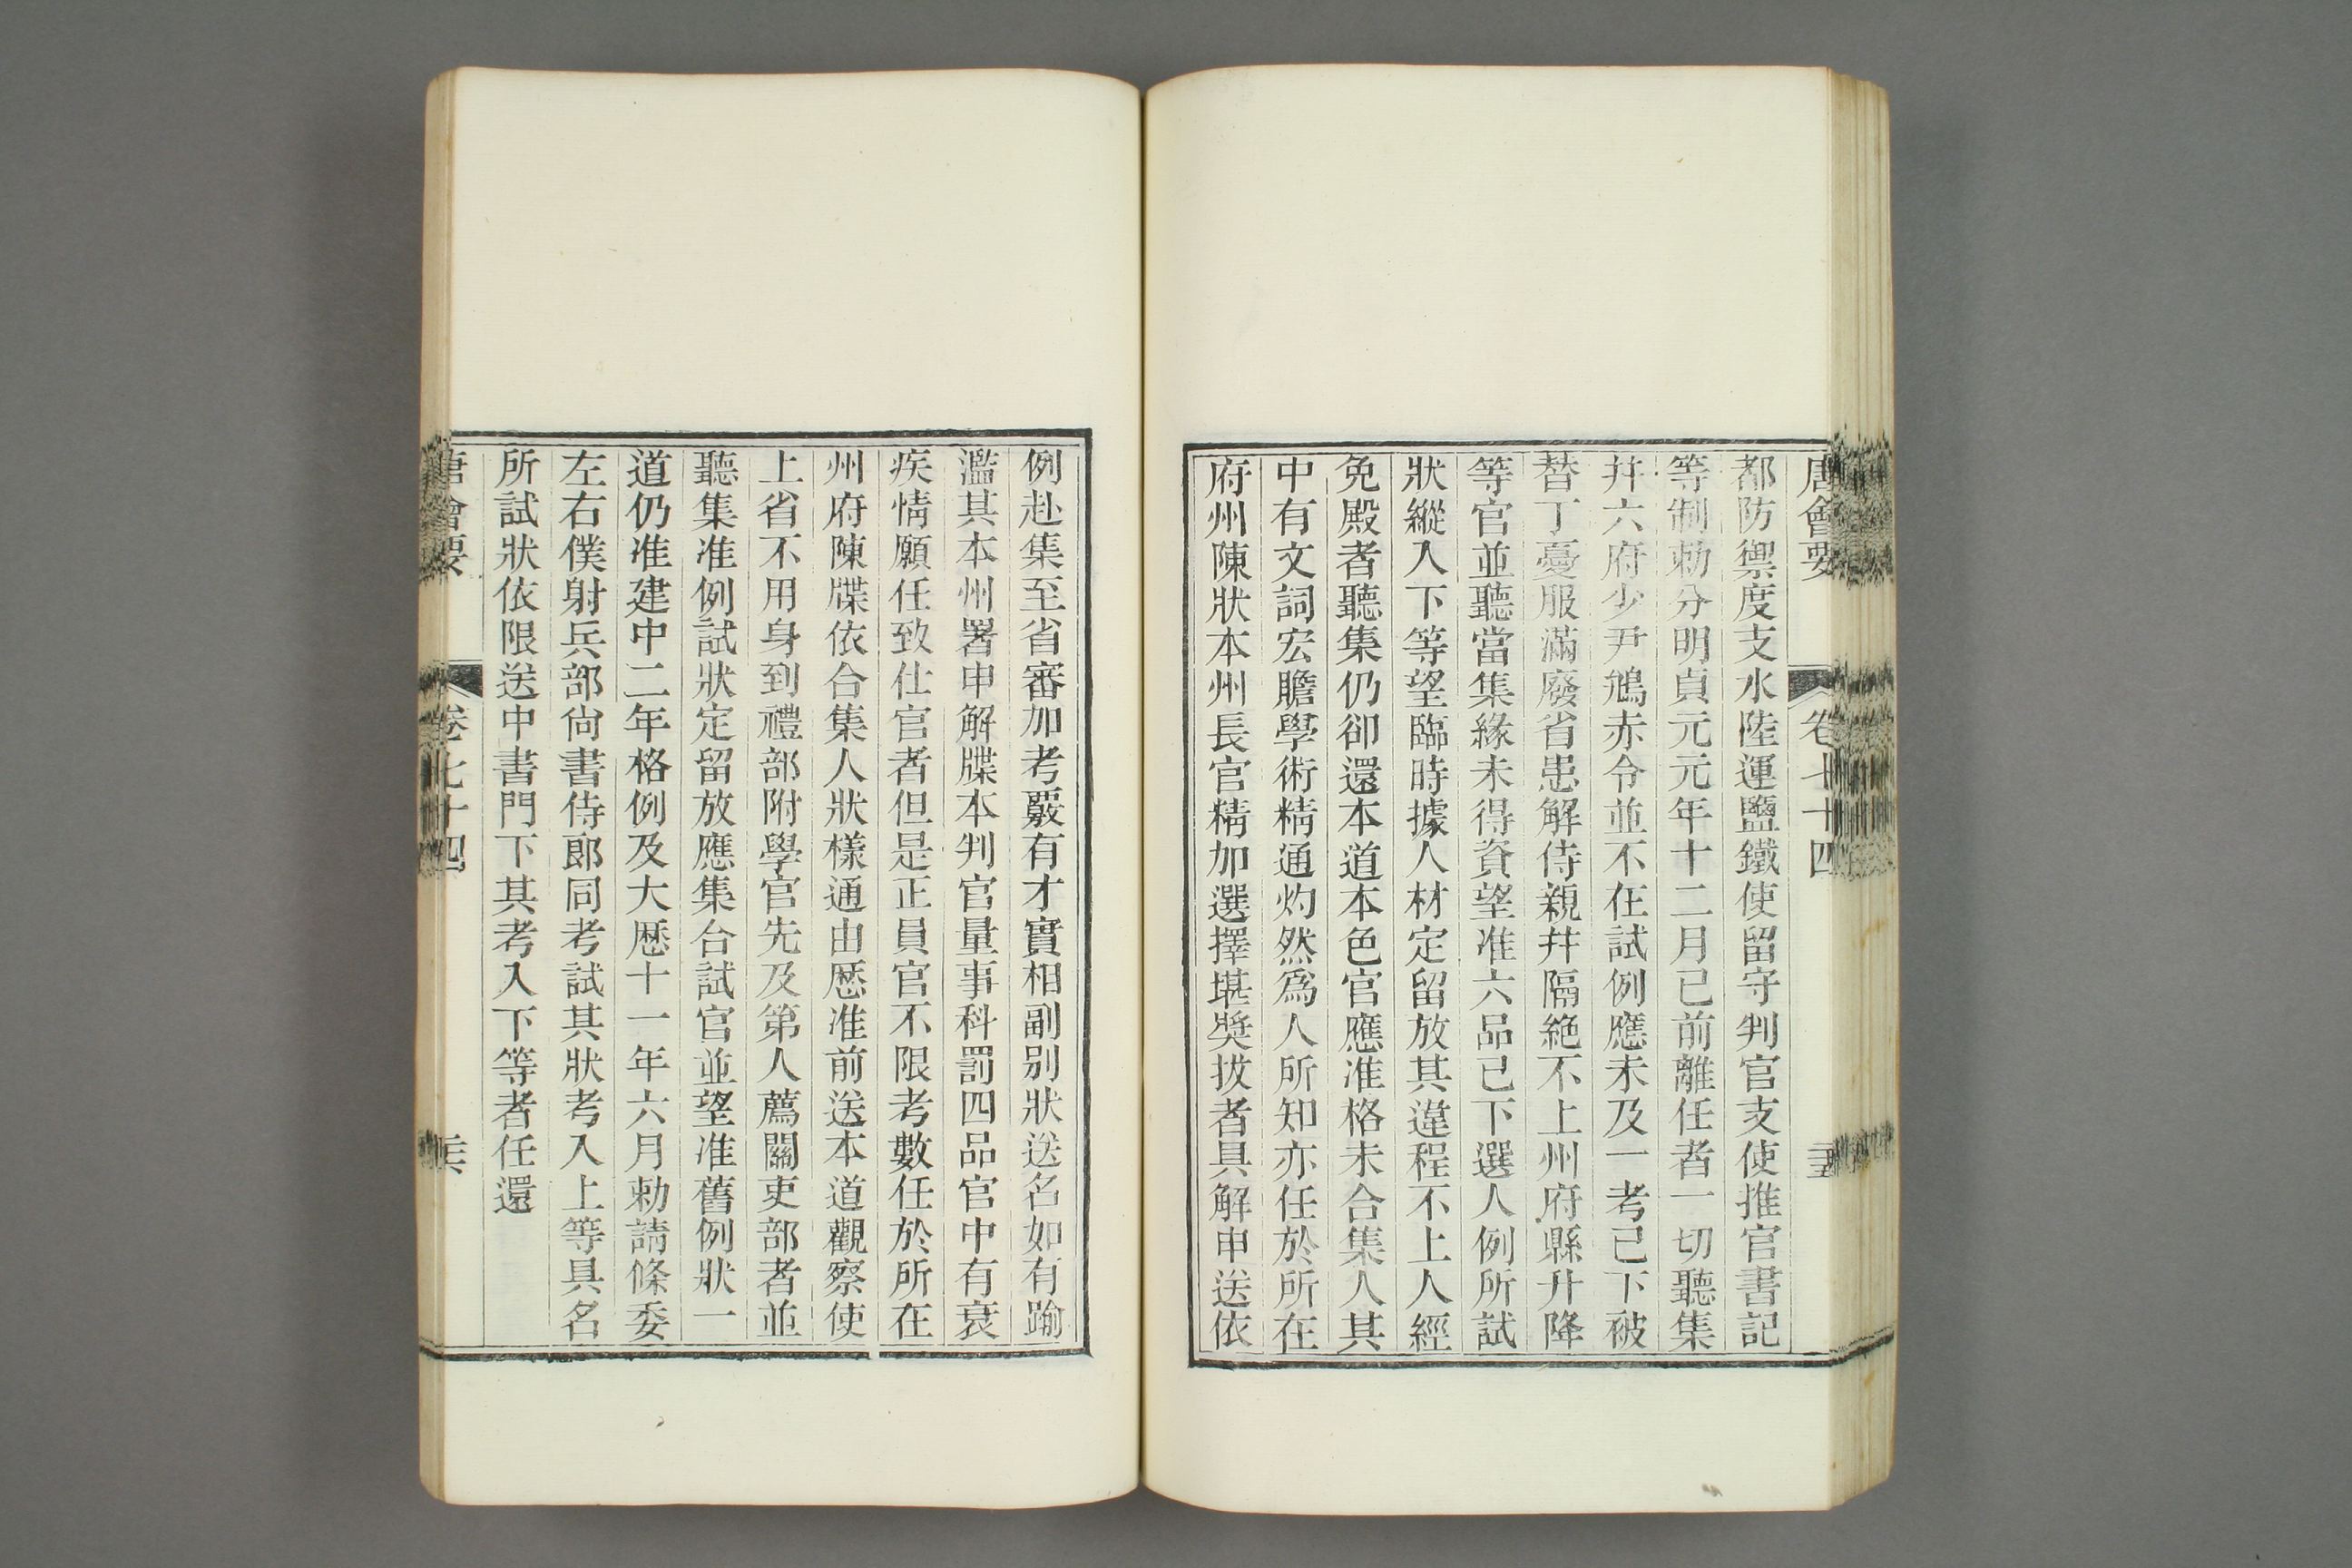 唐會要 卷七十四
都防禦度支水陸運鹽鐵使留守判官支使推官書記
等制勅分明貞元元年十二月已前離任者一切聽集
幷六府少尹鴘赤令並不在試例應未及一考已下被
替丁憂服滿廢省患解侍親幷隔絶不上州府縣升降
等官並聽當集緣未得資望准六品已下選人例所試
狀縱入下等望臨時據人材定留放其違程不上人經
免殿者聽集仍卻還本道本色官應准格未合集人其
中有文詞宏贍學術精通灼然爲人所知亦任於所在
府州陳狀本州長官精加選擇堪奬拔者具解申送依
例赴集至省審加考覈有才實相副别狀送名如有踰
濫其本州署申解牒本判官量事科罰四品官中有衰
疾情願任致仕官者但是正員官不限考數任於所在
州府陳牒依合集人狀樣通由歷准前送本道觀察使
上省不用身到禮部附學官先及第人薦關吏部者並
聽集准例試狀定留放應集合試官並望准舊例狀一
道仍准建中二年格例及大歷十一年六月勅請條委
左右僕射兵部尙書侍郎同考試其狀考入上等具名
所試狀依限送中書門下其考入下等者任還
唐會要 卷七十四